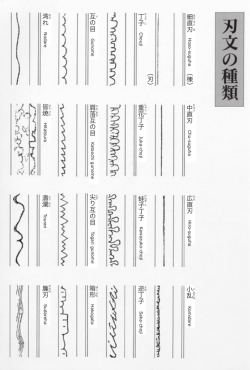 刃文の種類
細直刃
Hoso-suguha
(棟)
中直刃
Chu-suguha
広直刃
Hiro-suguha
小乱
Komidare
丁子
Choji
(刃)
重花丁子
Juka choji
蛙子丁子
Kawazuko choji
逆丁子
Saka choji
互の目
Gunome
肩落互の目
Kataochi gunome
尖り互の目
Togari gunome
箱形
Hakogata
湾れ
Notare
皆焼
Hitatsura
濤瀾
Toyran
簾刃
Sudareba